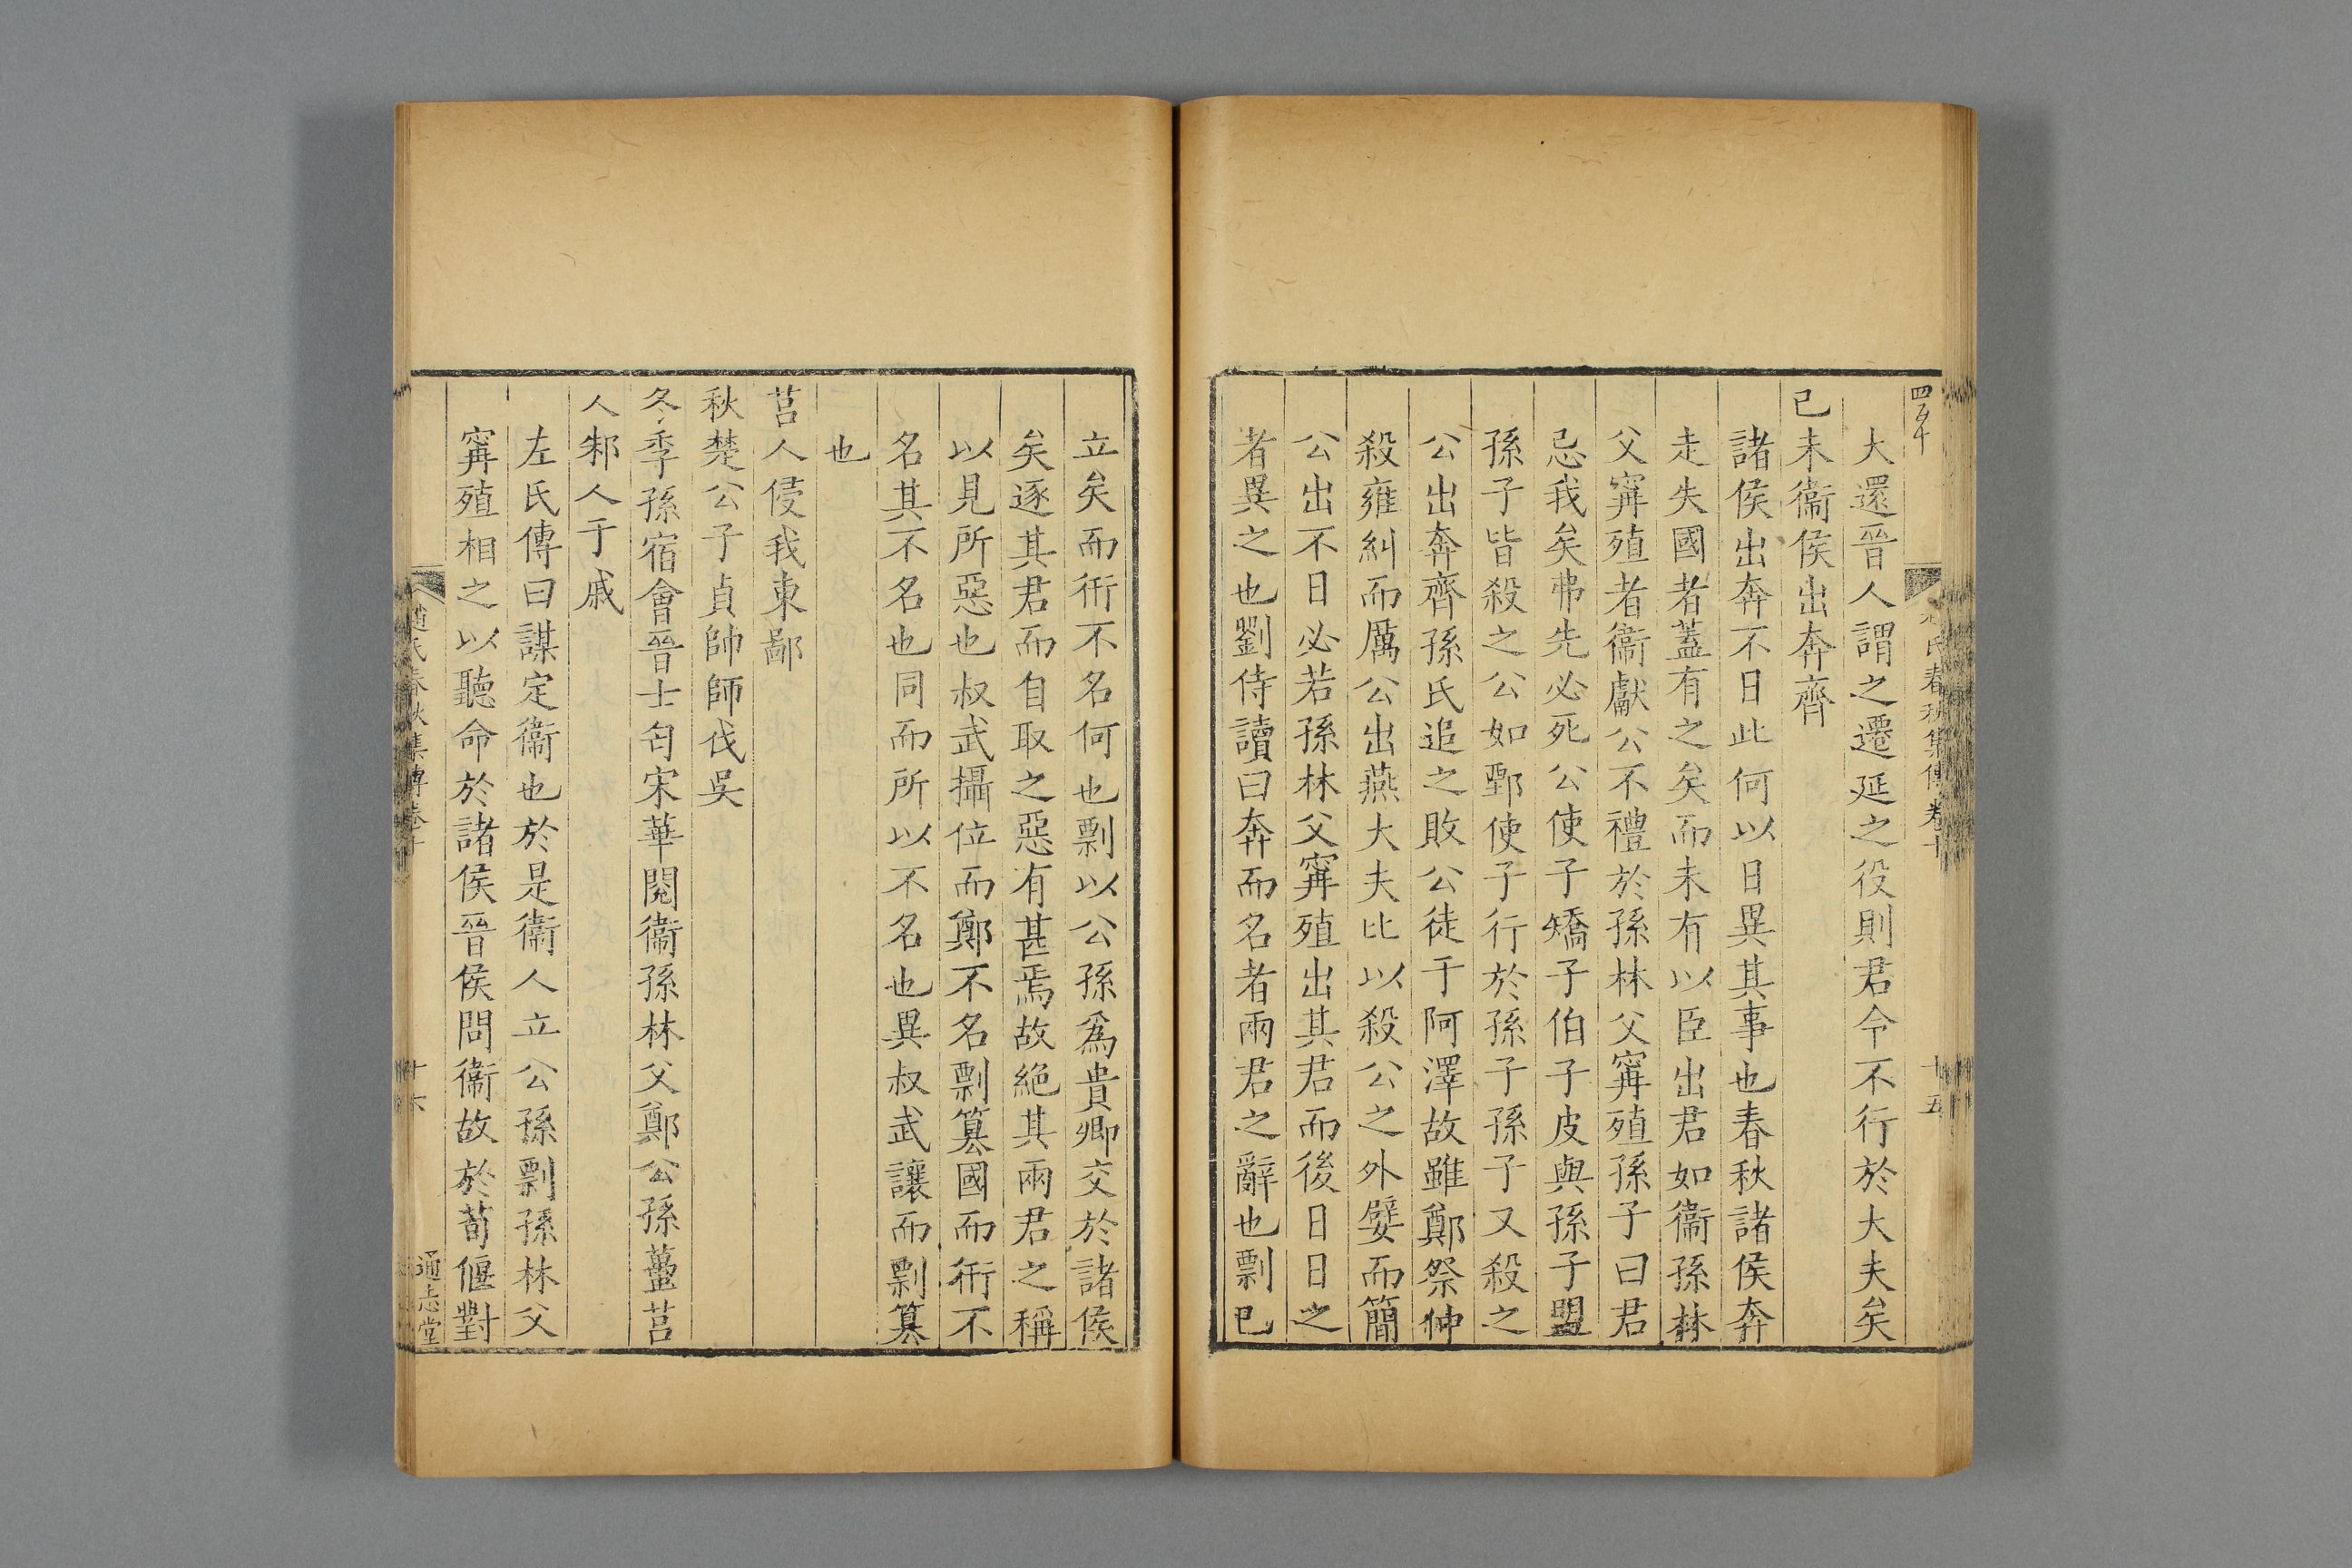 大還晉人謂之遷延之役則君令不行於大夫矣
己未衞侯出奔齊
諸侯出奔不日此何以日異其事也春秋諸侯奔
走失國者蓋有之矣而未有以臣出君如衞孫林
父甯殖者衞獻公不禮於孫林父甯殖孫子曰君
忌我矣弗先必死公使子矯子伯子皮與孫子盟
孫子皆殺之公如鄄使子行於孫子孫子又殺之
公出奔齊孫氏追之敗公徒于阿澤故雖鄭祭仲
殺雍糾而厲公出燕大夫比以殺公之外嬖而簡
公出不日必若孫林父甯殖出其君而後日日之
者異之也劉侍讀曰奔而名者兩君之辭也剽已
春秋集傳卷十
十五
立矣而衎不名何也剽以公孫爲貴卿交於諸侯
矣逐其君而自取之惡有甚焉故絶其兩君之稱
以見所惡也叔武攝位而鄭不名剽簒國而衎不
名其不名也同而所以不名也異叔武讓而剽簒
也
莒人侵我東鄙
秋楚公子貞帥師伐吳
冬季孫宿會晉士匄宋華閱衞孫林父鄭公孫蠆莒
人邾人于戚
左氏傳曰謀定衞也於是衞人立公孫剽孫林父
甯殖相之以聽命於諸侯晉侯問衞故於荀偃對
春秋集傳卷十
十六
通志堂